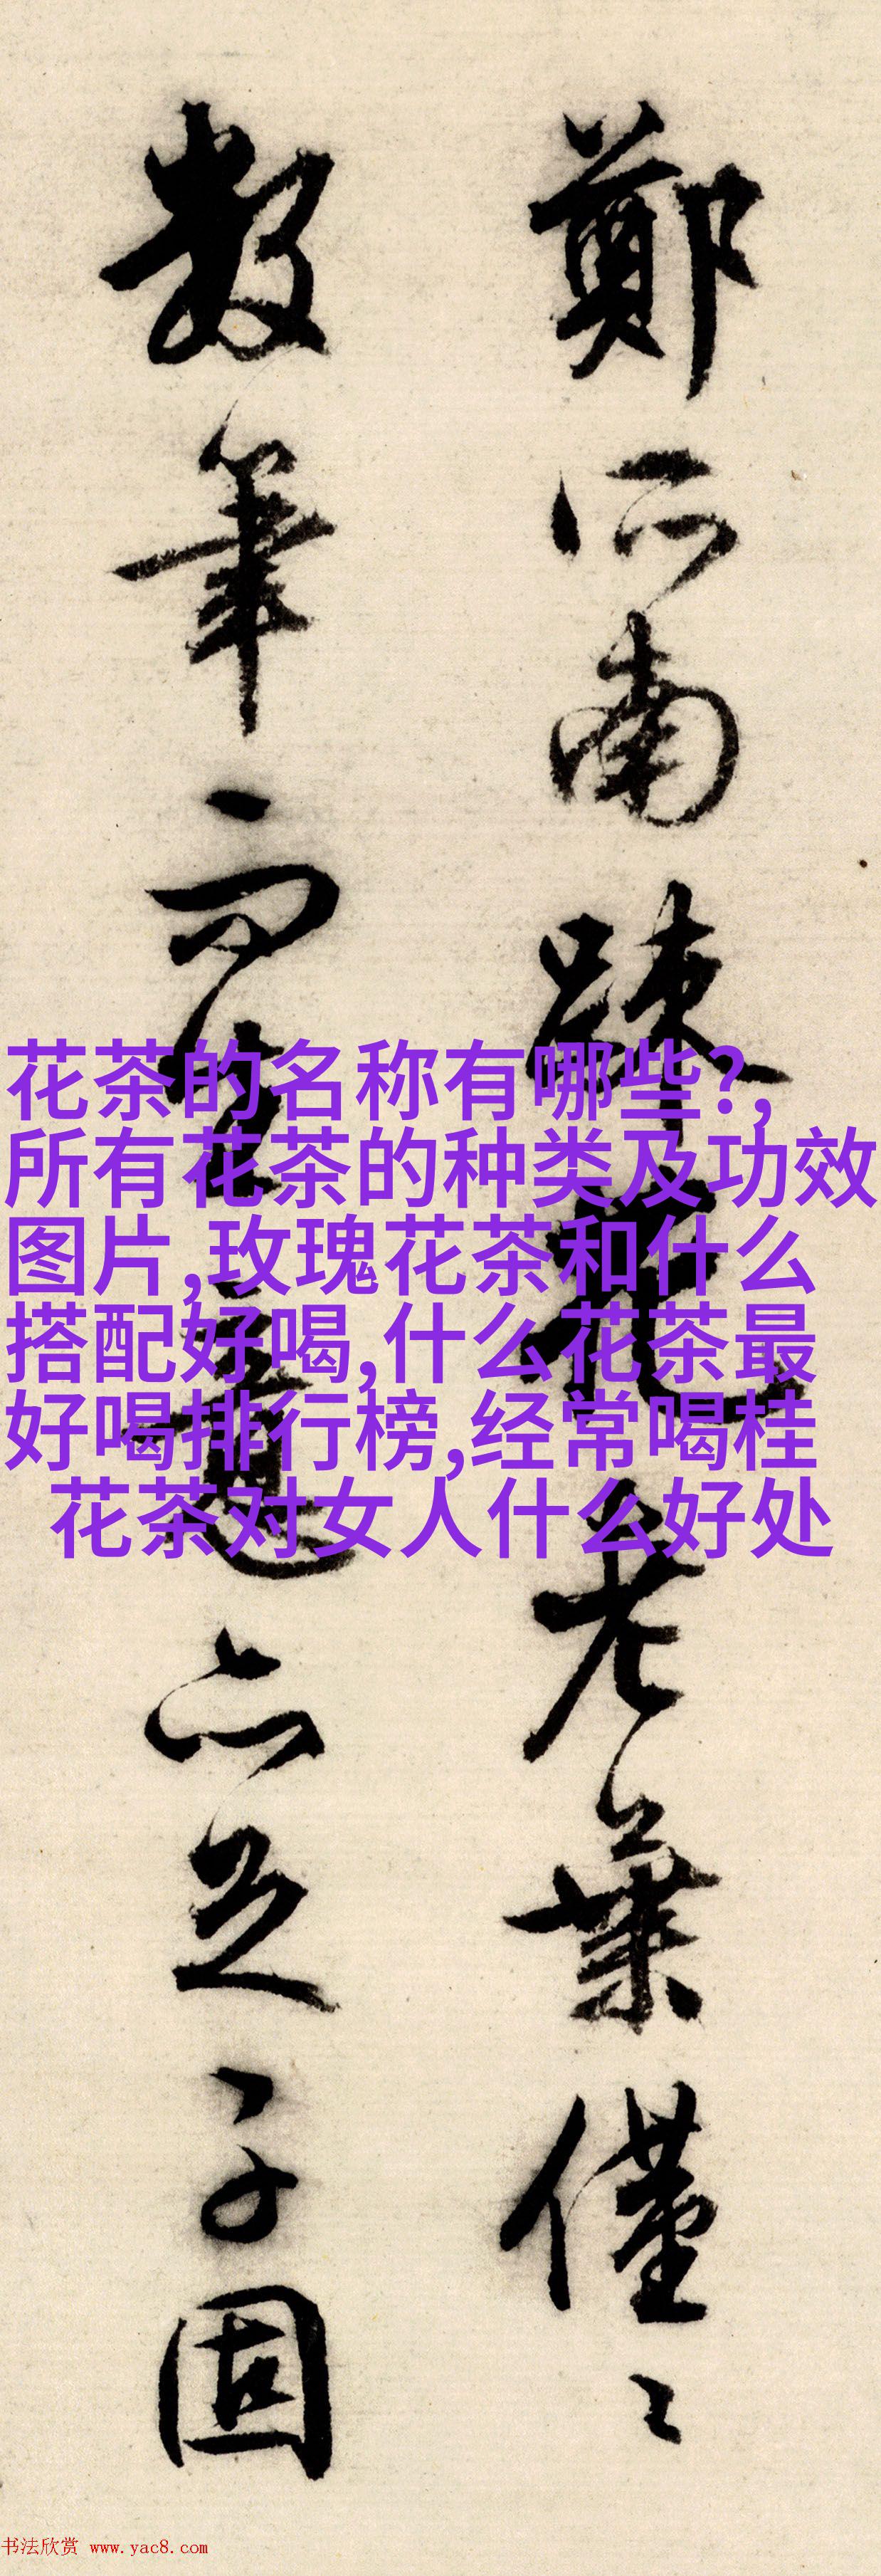 鄭所南疎花老葉僅〻
數筆而生意亦足子固
花茶的名称有哪些?,
所有花茶的种类及功效
图片,玫瑰花茶和什么
搭配好喝,什么花茶最
好喝排行榜,经常喝桂
花茶对女人什么好处
书法欣赏 www.yac8.com